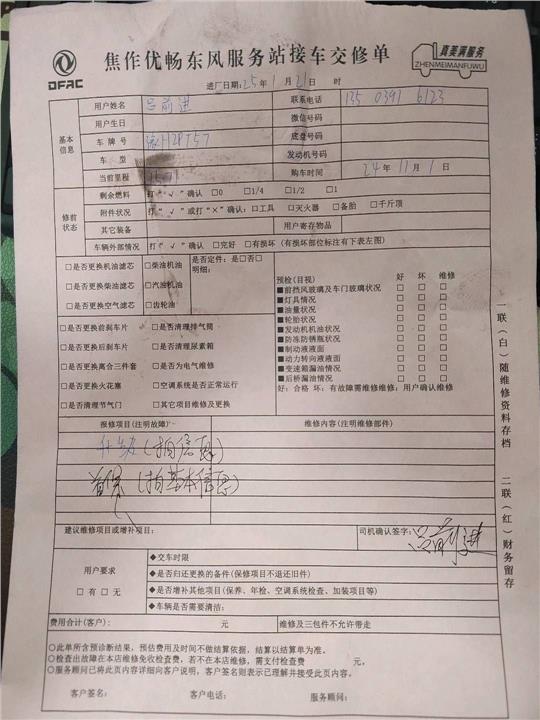 DFAC
焦作优畅东风服务站接车交修单
真美满服务
ZHENMEIMANFUWU
进厂日期:25年1月21日 时
基本信息
用户姓名 吕前进 联系电话 135 0391 6123
用户生日 微信号码
车牌号 底盘号码
车型 发动机号码
当前里程 购车时间 24年11月1日
修前状态
剩余燃料 打“√”确认 □0 □1/4 □1/2 □1
附件状况 打“√”或打“×”确认:□工具 □灭火器 □备胎 □千斤顶
其它装备 用户寄存物品
车辆外部情况 打“√”确认 □完好 □有损坏(有损坏部位标注有下表左图)
□是否更换机油滤芯 □柴油机油 是否定件:是□否□
明细:
□是否更换柴油滤芯 □汽油机油
□是否更换空气滤芯 □齿轮油
□是否更换前刹车片 □是否清理排气筒
□是否更换后刹车片 □是否清理尿素箱
□是否更换离合三件套 □是否为电气维修
□是否更换火花塞 □空调系统是否正常运行
□是否清理节气门 □其它项目维修及更换
预检(目视) 好 坏 维修
■前挡风玻璃及车门玻璃状况 □ □ □
■灯具情况 □ □ □
■油量状况 □ □ □
■轮胎状况 □ □ □
■发动机机油状况 □ □ □
■防冻防锈瓶状况 □ □ □
■制动液液面 □ □ □
■动力转向液液面 □ □ □
■变速箱漏油情况 □ □ □
■后桥漏油情况 □ □ □
好:合格 坏:有故障需维修维修:用户确认维修
报修项目(注明故障) 维修内容(注明维修部件)
首保(拍基本信息)
建议维修项目或增补项目: 司机确认签字:吕前进
用户要求
□有□无
◆交车时限
◆是否归还更换的备件(保修项目不退还旧件)
◆是否增补其他项目(保养、年检、空调系统检查、加装项目等)
◆车辆是否需要清洁:
费用合计(客户): 元 维修及三包件不允许带走
○此单所含预诊断结果,预估费用及时间不做结算依据,结算以结算单为准。
○检查出故障在本店维修免收检查费,若不在本店维修,需支付检查费 元。
○服务顾问已将此页内容详细向客户说明,客户签名则表示已理解并接受此页内容。
客户签名: 客户电话: 服务顾问:
一联(白)随维修资料存档
二联(红)财务留存